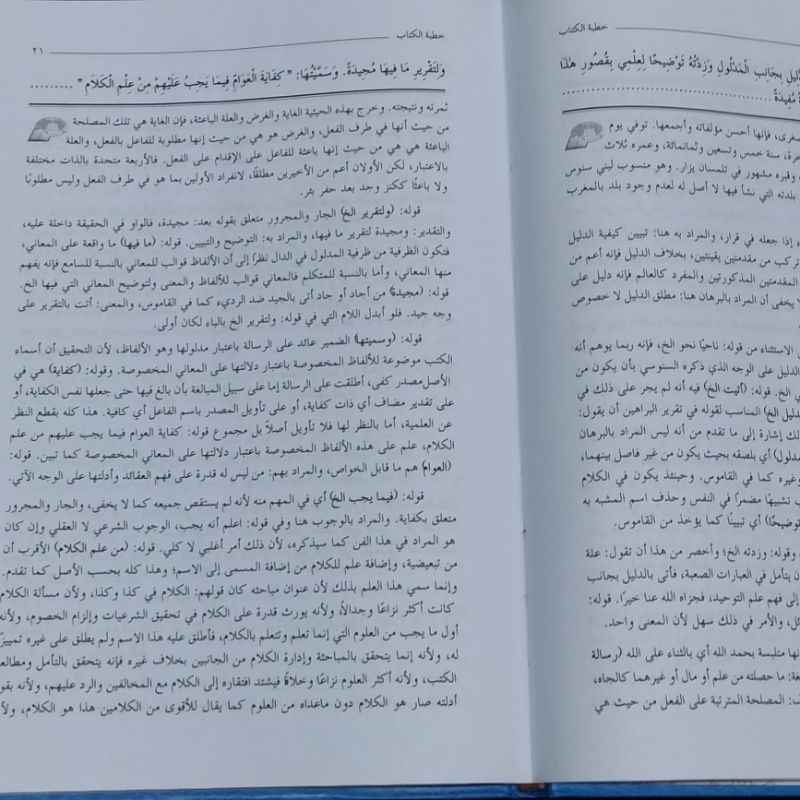 خطبة الكتاب
ـدليل بجانب المدلول وزدته توضيحًا لعلمي بقصور هذا
مفيدة
صغرى، فإنها أحسن مؤلفاته وأجمعها. توفي يوم
ـخرة، سنة خمس وتسعين وثمانمائة، وعمره ثلاث
وقبره مشهور في تلمسان يزار. وهو منسوب لبني سنوس
بلدته التي نشأ فيها لا أصل له لعدم وجود بلد بالمغرب
إذا جعله في قرار، والمراد به هنا: تبيين كيفية الدليل
تركب من مقدمتين يقينتين، بخلاف الدليل فإنه أعم من
المقدمتين المذكورتين والمفرد كالعالم فإنه دليل على
يخفى أن المراد بالبرهان هنا: مطلق الدليل لا خصوص
الاستثناء من قوله: ناحيًا نحو الخ، فإنه ربما يوهم أنه
الدليل على الوجه الذي ذكره السنوسي بأن يكون من
الخ. قوله: (أتيت الخ) فيه أنه لم يجر على ذلك في
ـدليل الخ) المناسب لقوله في تقرير البراهين أن يقول:
ـلك إشارة إلى ما تقدم من أنه ليس المراد بالبرهان
مدلول) أي بلصقه بحيث يكون من غير فاصل بينهما،
وغيره كما في القاموس. وحينئذ يكون في الكلام
تشبيهًا مضمرًا في النفس وحذف اسم المشبه به
توضيحًا) أي تبيينًا كما يؤخذ من القاموس.
وقوله: وزدته الخ؛ وأخصر من هذا أن تقول: علة
ن يتأمل في العبارات الصعبة، فأتى بالدليل بجانب
إلى فهم علم التوحيد، فجزاه الله عنا خيرًا. قوله:
ـئل، والأمر في ذلك سهل لأن المعنى واحد.
ـنها متلبسة بحمد الله أي بالثناء على الله (رسالة
ـغة: ما حصلته من علم أو مال أو غيرهما كالجاه،
ف: المصلحة المترتبة على الفعل من حيث هي
خطبة الكتاب ٢١
وَلِتَقْرِيرِ مَا فِيهَا مُجِيدَةً. وَسَمَّيْتُهَا: "كِفَايَةَ الْعَوَامِّ فِيمَا يَجِبُ عَلَيْهِمْ مِنْ عِلْمِ الْكَلاَمِ" .........
ثمرته ونتيجته. وخرج بهذه الحيثية الغاية والغرض والعلة الباعثة، فإن الغاية هي تلك المصلحة
من حيث أنها في طرف الفعل، والغرض هو هي من حيث إنها مطلوبة للفاعل بالفعل، والعلة
الباعثة هي هي من حيث إنها باعثة للفاعل على الإقدام على الفعل. فالأربعة متحدة بالذات مختلفة
بالاعتبار، لكن الأولان أعم من الأخيرين مطلقًا، لانفراد الأولين بما هو في طرف الفعل وليس مطلوبًا
ولا باعثًا ككنز وجد بعد حفر بئر.
قوله: (ولتقرير الخ) الجار والمجرور متعلق بقوله بعد: مجيدة، فالواو في الحقيقة داخلة عليه،
والتقدير: ومجيدة لتقرير ما فيها، والمراد به: التوضيح والتبيين. قوله: (ما فيها) ما واقعة على المعاني،
فتكون الظرفية من ظرفية المدلول في الدال نظرًا إلى أن الألفاظ قوالب للمعاني بالنسبة للسامع فإنه يفهم
منها المعاني، وأما بالنسبة للمتكلم فالمعاني قوالب للألفاظ والمعنى ولتوضيح المعاني التي فيها الخ.
قوله: (مجيدة) من أجاد أو جاد أتى بالجيد ضد الرديء كما في القاموس، والمعنى: أتت بالتقرير على
وجه جيد. فلو أبدل اللام التي في قوله: ولتقرير الخ بالباء لكان أولى.
قوله: (وسميتها) الضمير عائد على الرسالة باعتبار مدلولها وهو الألفاظ، لأن التحقيق أن أسماء
الكتب موضوعة للألفاظ المخصوصة باعتبار دلالتها على المعاني المخصوصة. وقوله: (كفاية) هي في
الأصل مصدر كفى، أطلقت على الرسالة إما على سبيل المبالغة بأن بالغ فيها حتى جعلها نفس الكفاية، أو
على تقدير مضاف أي ذات كفاية، أو على تأويل المصدر باسم الفاعل أي كافية. هذا كله بقطع النظر
عن العلمية، أما بالنظر لها فلا تأويل أصلاً بل مجموع قوله: كفاية العوام فيما يجب عليهم من علم
الكلام، علم على هذه الألفاظ المخصوصة باعتبار دلالتها على المعاني المخصوصة كما تبين. قوله:
(العوام) هم ما قابل الخواص، والمراد بهم: من ليس له قدرة على فهم العقائد وأدلتها على الوجه الآتي.
قوله: (فيما يجب الخ) أي في المهم منه لأنه لم يستقص جميعه كما لا يخفى، والجار والمجرور
متعلق بكفاية. والمراد بالوجوب هنا وفي قوله: اعلم أنه يجب، الوجوب الشرعي لا العقلي وإن كان
هو المراد في هذا الفن كما سيذكره، لأن ذلك أمر أغلبي لا كلي. قوله: (من علم الكلام) الأقرب أن
من تبعيضية، وإضافة علم للكلام من إضافة المسمى إلى الاسم؛ وهذا كله بحسب الأصل كما تقدم.
وإنما سمي هذا العلم بذلك لأن عنوان مباحثه كان قولهم: الكلام في كذا وكذا، ولأن مسألة الكلام
كانت أكثر نزاعًا وجدالاً، ولأنه يورث قدرة على الكلام في تحقيق الشرعيات وإلزام الخصوم، ولأنه
أول ما يجب من العلوم التي إنما تعلم وتتعلم بالكلام، فأطلق عليه هذا الاسم ولم يطلق على غيره تمييزًا
له، ولأنه إنما يتحقق بالمباحثة وإدارة الكلام من الجانبين بخلاف غيره فإنه يتحقق بالتأمل ومطالعـ
الكتب، ولأنه أكثر العلوم نزاعًا وخلافًا فيشتد افتقاره إلى الكلام مع المخالفين والرد عليهم، ولأنه بقو
أدلته صار هو الكلام دون ماعداه من العلوم كما يقال للأقوى من الكلامين هذا هو الكلام، ولأ